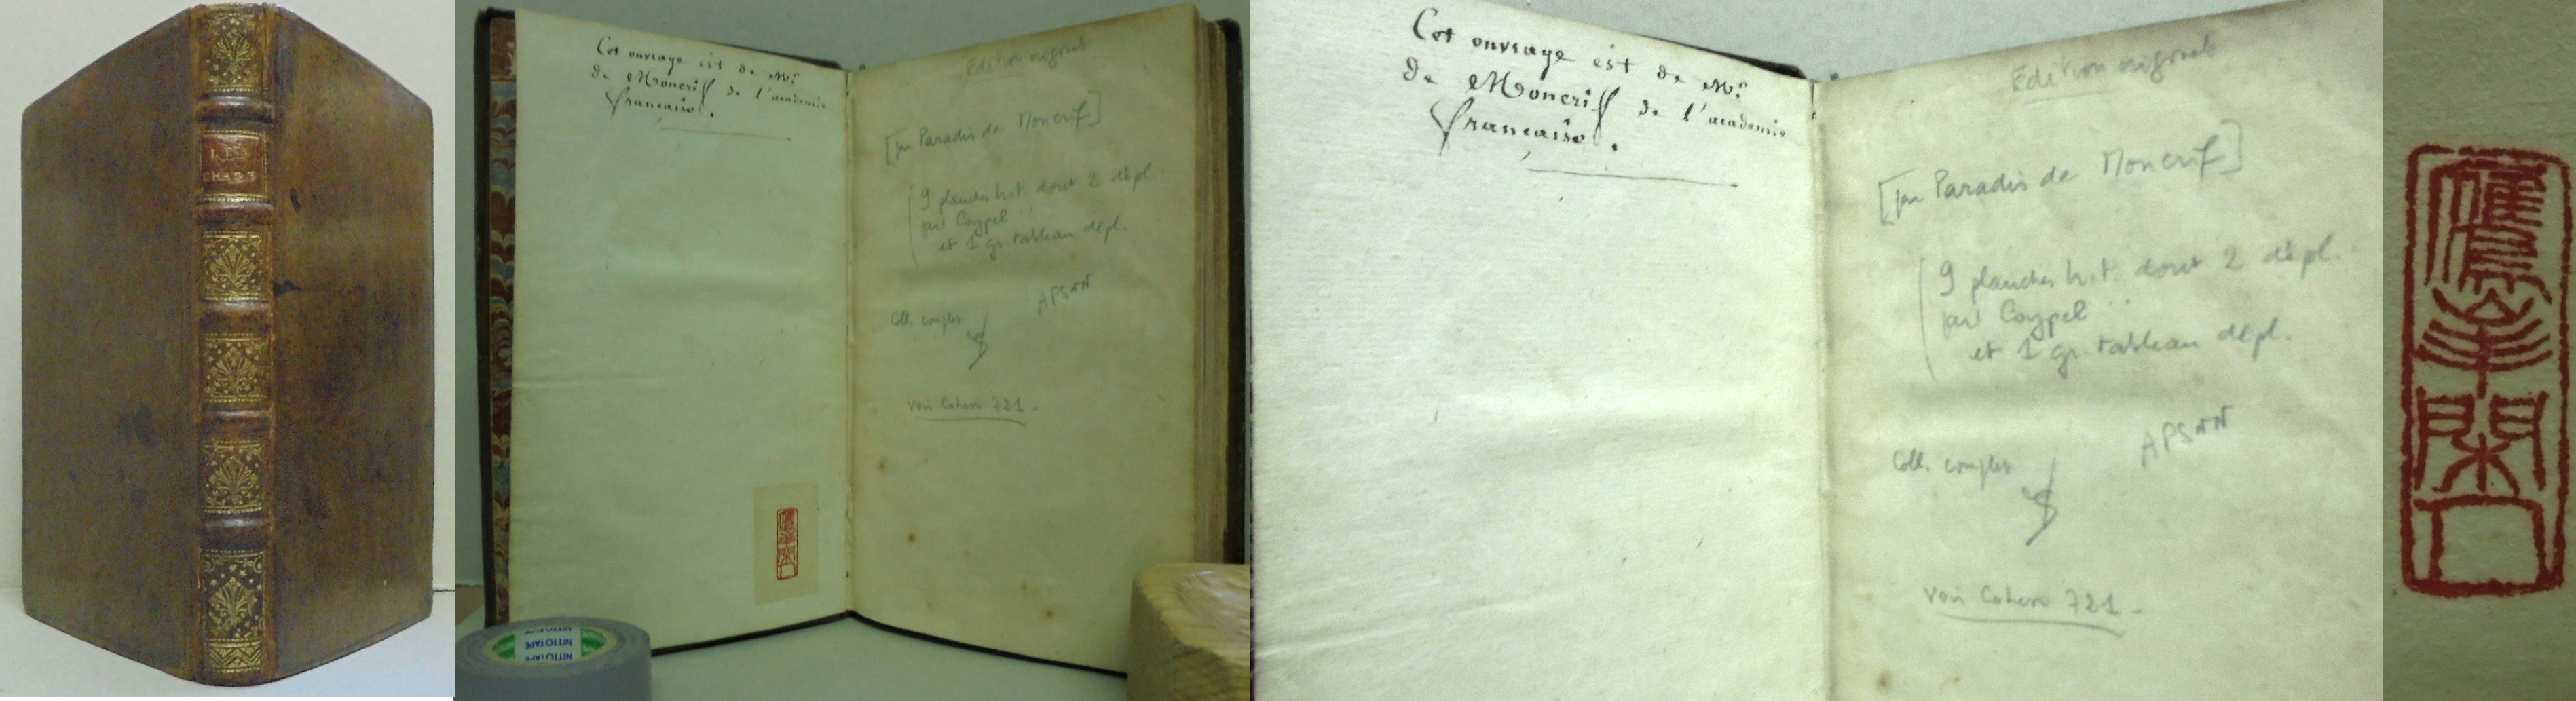 LES
CHATS
Cet ouvrage est de Mr.
de Moncriff de l'academie
francaise.
Edition originale
[par Paradis de Moncrif]
9 planches h.t. dont 2 dépl.
par Coypel
et 1 gr. tableau dépl.
Coll. complet
voir Cohen 721-
NITTOTAPE
NITTOTAPE
Cet ouvrage est de Mr.
de Moncriff de l'academie
francaise.
Edition originale
[par Paradis de Moncrif]
9 planches h.t. dont 2 dépl.
par Coypel
et 1 gr. tableau dépl.
Coll. complet
voir Cohen 721-